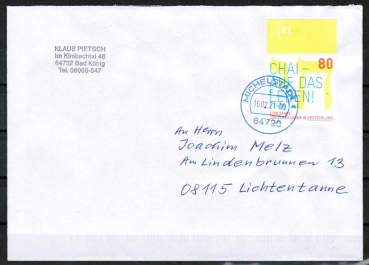 KLAUS PIETSCH
Im Kimbachtal 48
64732 Bad König
Tel. 06066-547
80
CHAI –
AUF DAS
LEBEN!
MICHELSTADT
16.02.21
64720
An Herrn
Joachim Melz
Am Lindenbrunnen 13
08115 Lichtentanne